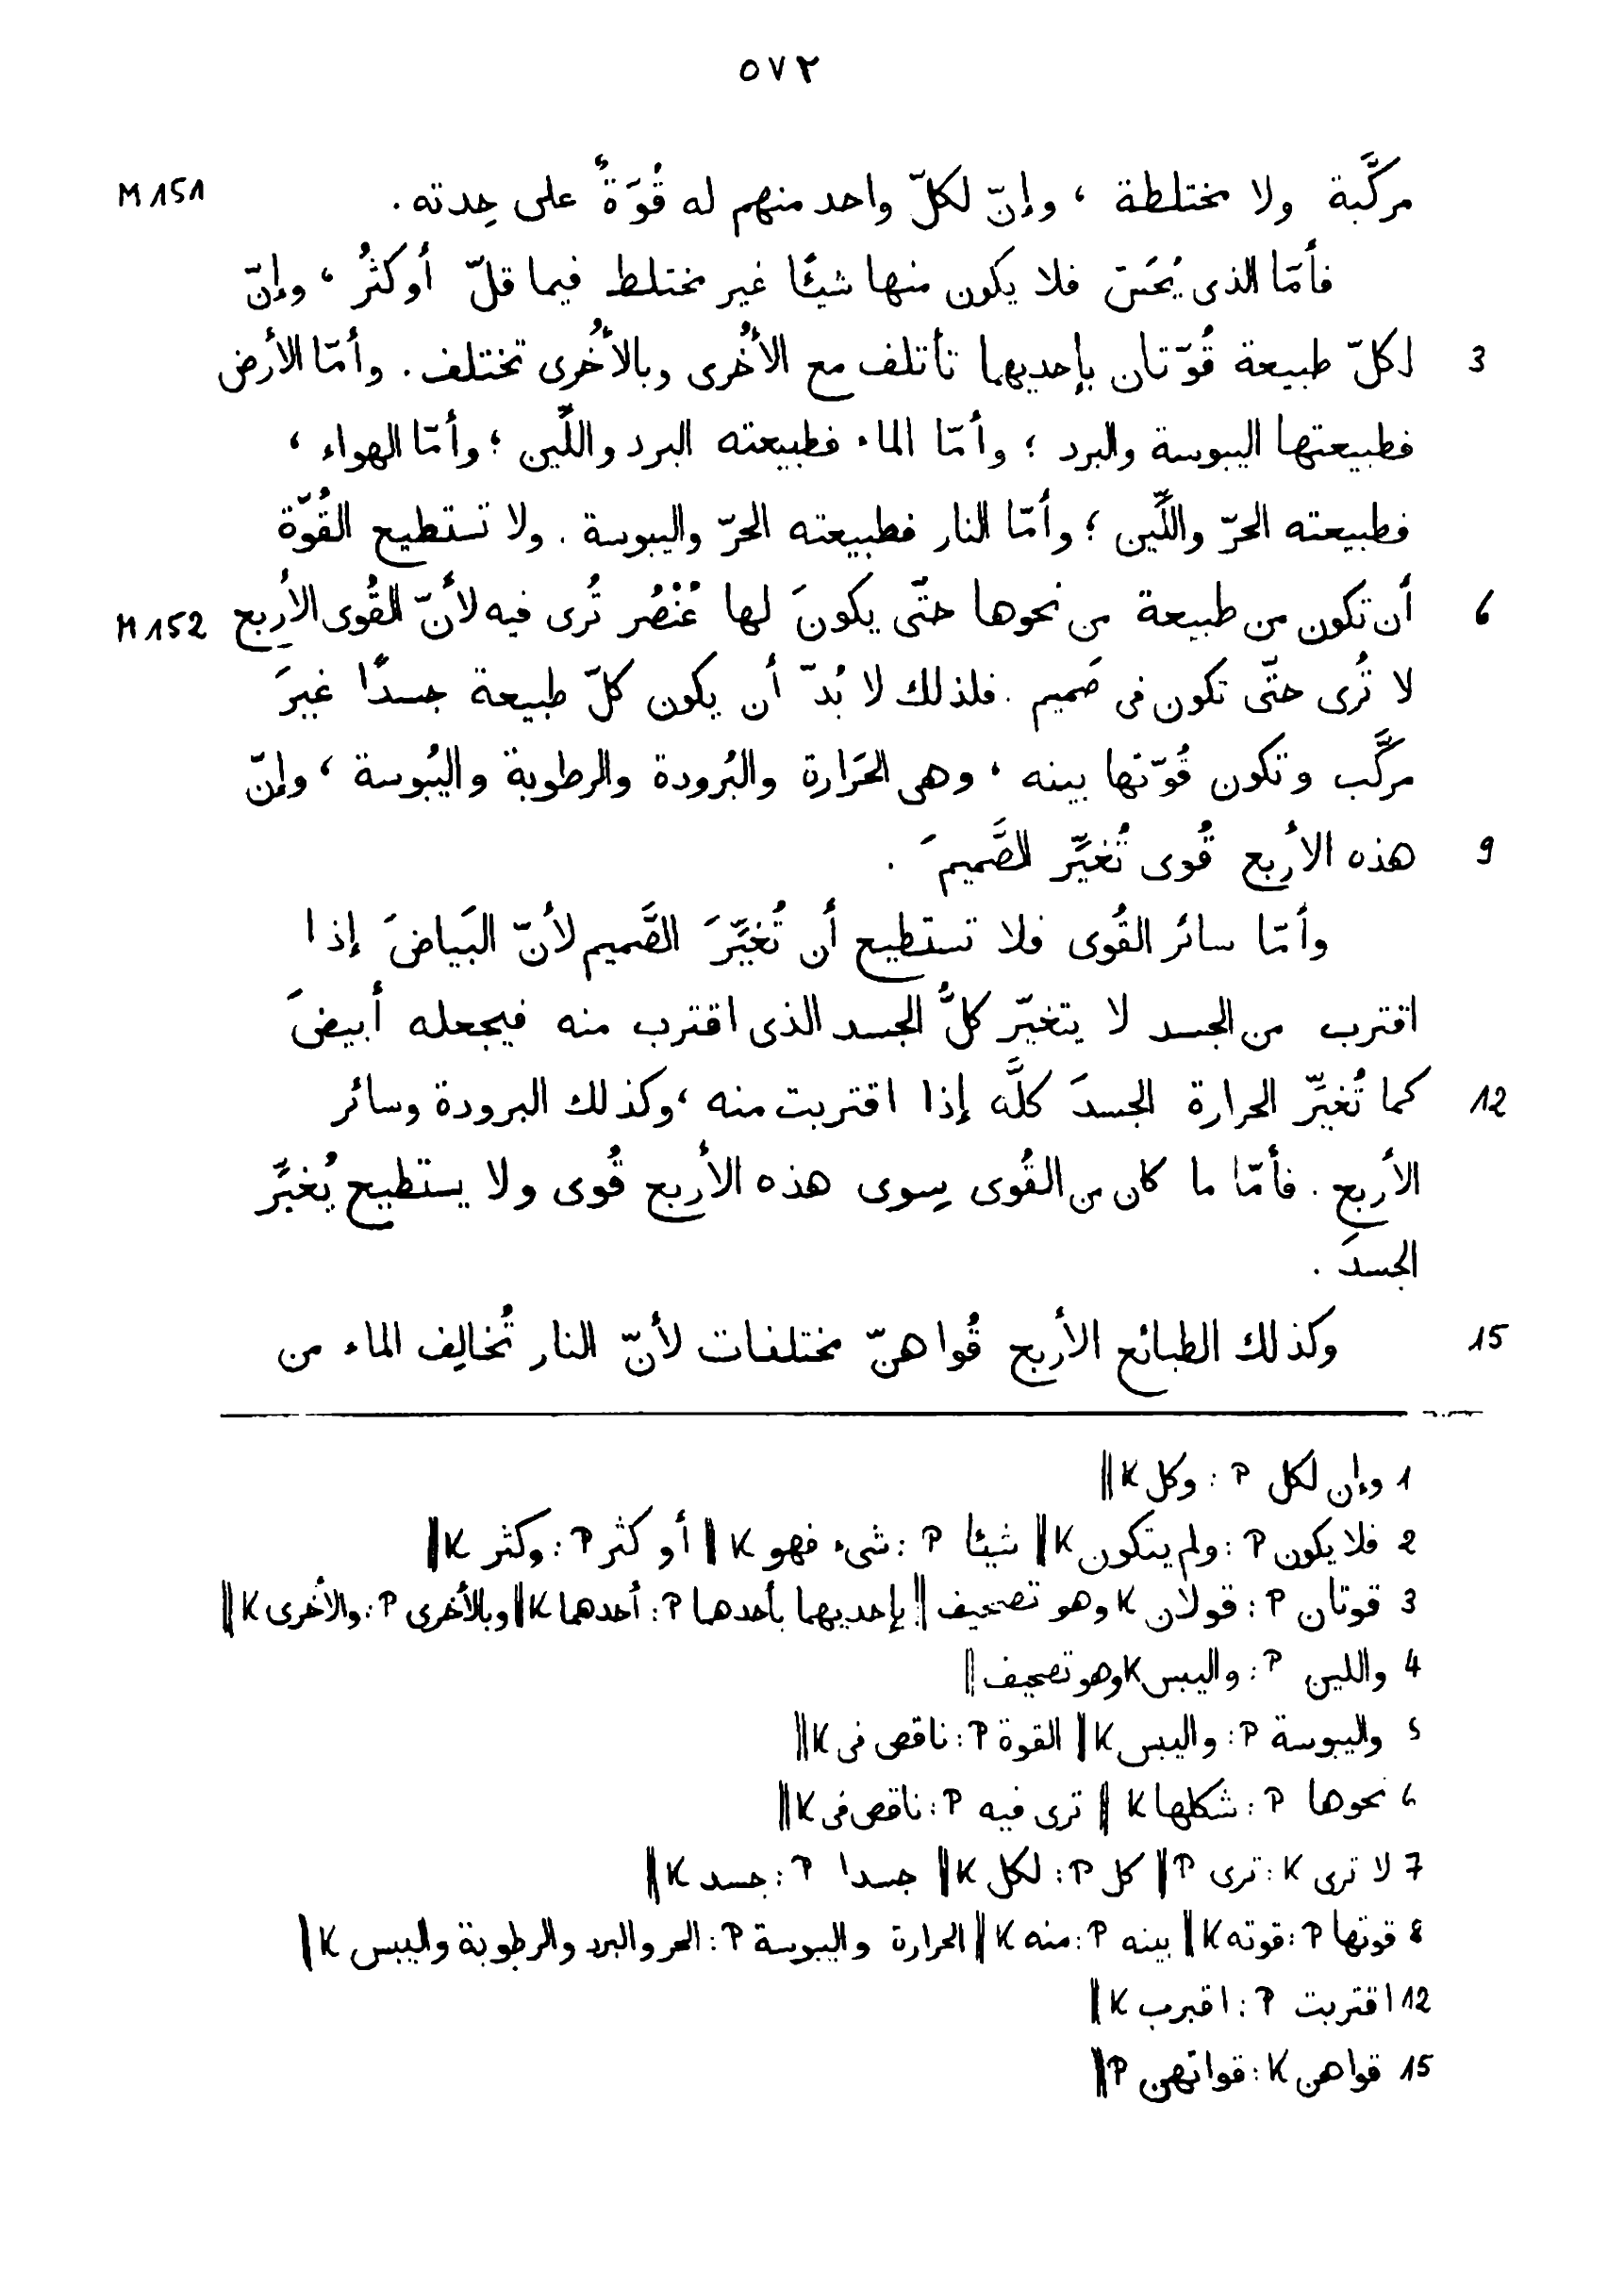 ٥٧٢
مركَّبة ولا مختلطة ، وإنّ لكلّ واحد منهم له قُوَةٌ على حِدته . M 151
فأمّا الذى يُحَسّ فلا يكون منها شيئًا غير مختلط فيما قلّ أو كثُر ، وإنّ
3 لكلّ طبيعة قُوّتان بإحديهما تأتلف مع الأُخرى وبالأُخرى تختلف . وأمّا الأرض
فطبيعتها اليبوسة والبرد ؛ وأمّا الماء فطبيعته البرد واللِّين ؛ وأمّا الهواء ،
فطبيعته الحرّ واللِّين ؛ وأمّا النار فطبيعته الحرّ واليبوسة . ولا تستطيع القُوّة
6 أن تكون من طبيعة من نحوها حتّى يكونَ لها عُنْصُر تُرى فيه لأنّ القُوى الأربع M 152
لا تُرى حتّى تكون فى صَميم . فلذلك لا بُدّ أن يكون كلّ طبيعة جسدًا غيرَ
مركَّب وتكون قُوّتها بينه ، وهى الحَرارة والبُرودة والرطوبة واليُبوسة ، وإنّ
9 هذه الأربع قُوى تُغيِّر الصَّميمَ .
وأمّا سائر القُوى فلا تستطيع أن تُغيِّرَ الصَّميم لأنّ البَياضَ إذا
اقترب من الجسد لا يتغيّر كلُّ الجسد الذى اقترب منه فيجعله أبيضَ
12 كما تُغيِّر الحرارة الجسدَ كلَّه إذا اقتربت منه ، وكذلك البرودة وسائر
الأربع . فأمّا ما كان من القُوى سِوى هذه الأربع قُوى ولا يستطيع يُغيِّر
الجسدَ .
15 وكذلك الطبائع الأربع قُواهنّ مختلفات لأنّ النار تُخالِف الماء من
1 وإن لكل P : وكل K ||
2 فلا يكون P : ولم يتكون K || شيئا P : شىء فهو K || أو كثر P : وكثر K ||
3 قوتان P : قولان K وهو تصحيف || بإحديهما بأحدها P : أحدهما K || وبالأخرى P : والأخرى K ||
4 واللين P : واليبس K وهو تصحيف ||
5 واليبوسة P : واليبس K || القوة P : ناقص فى K ||
6 نحوها P : شكلها K || ترى فيه P : ناقص فى K ||
7 لا ترى K : ترى P || كل P : لكل K || جسدا P : جسد K ||
8 قوتها P : قوته K || بينه P : منه K || الحرارة واليبوسة P : الحر والبرد والرطوبة واليبس K ||
12 اقتربت P : اقبرب K ||
15 قواهن K : قواتهن P ||